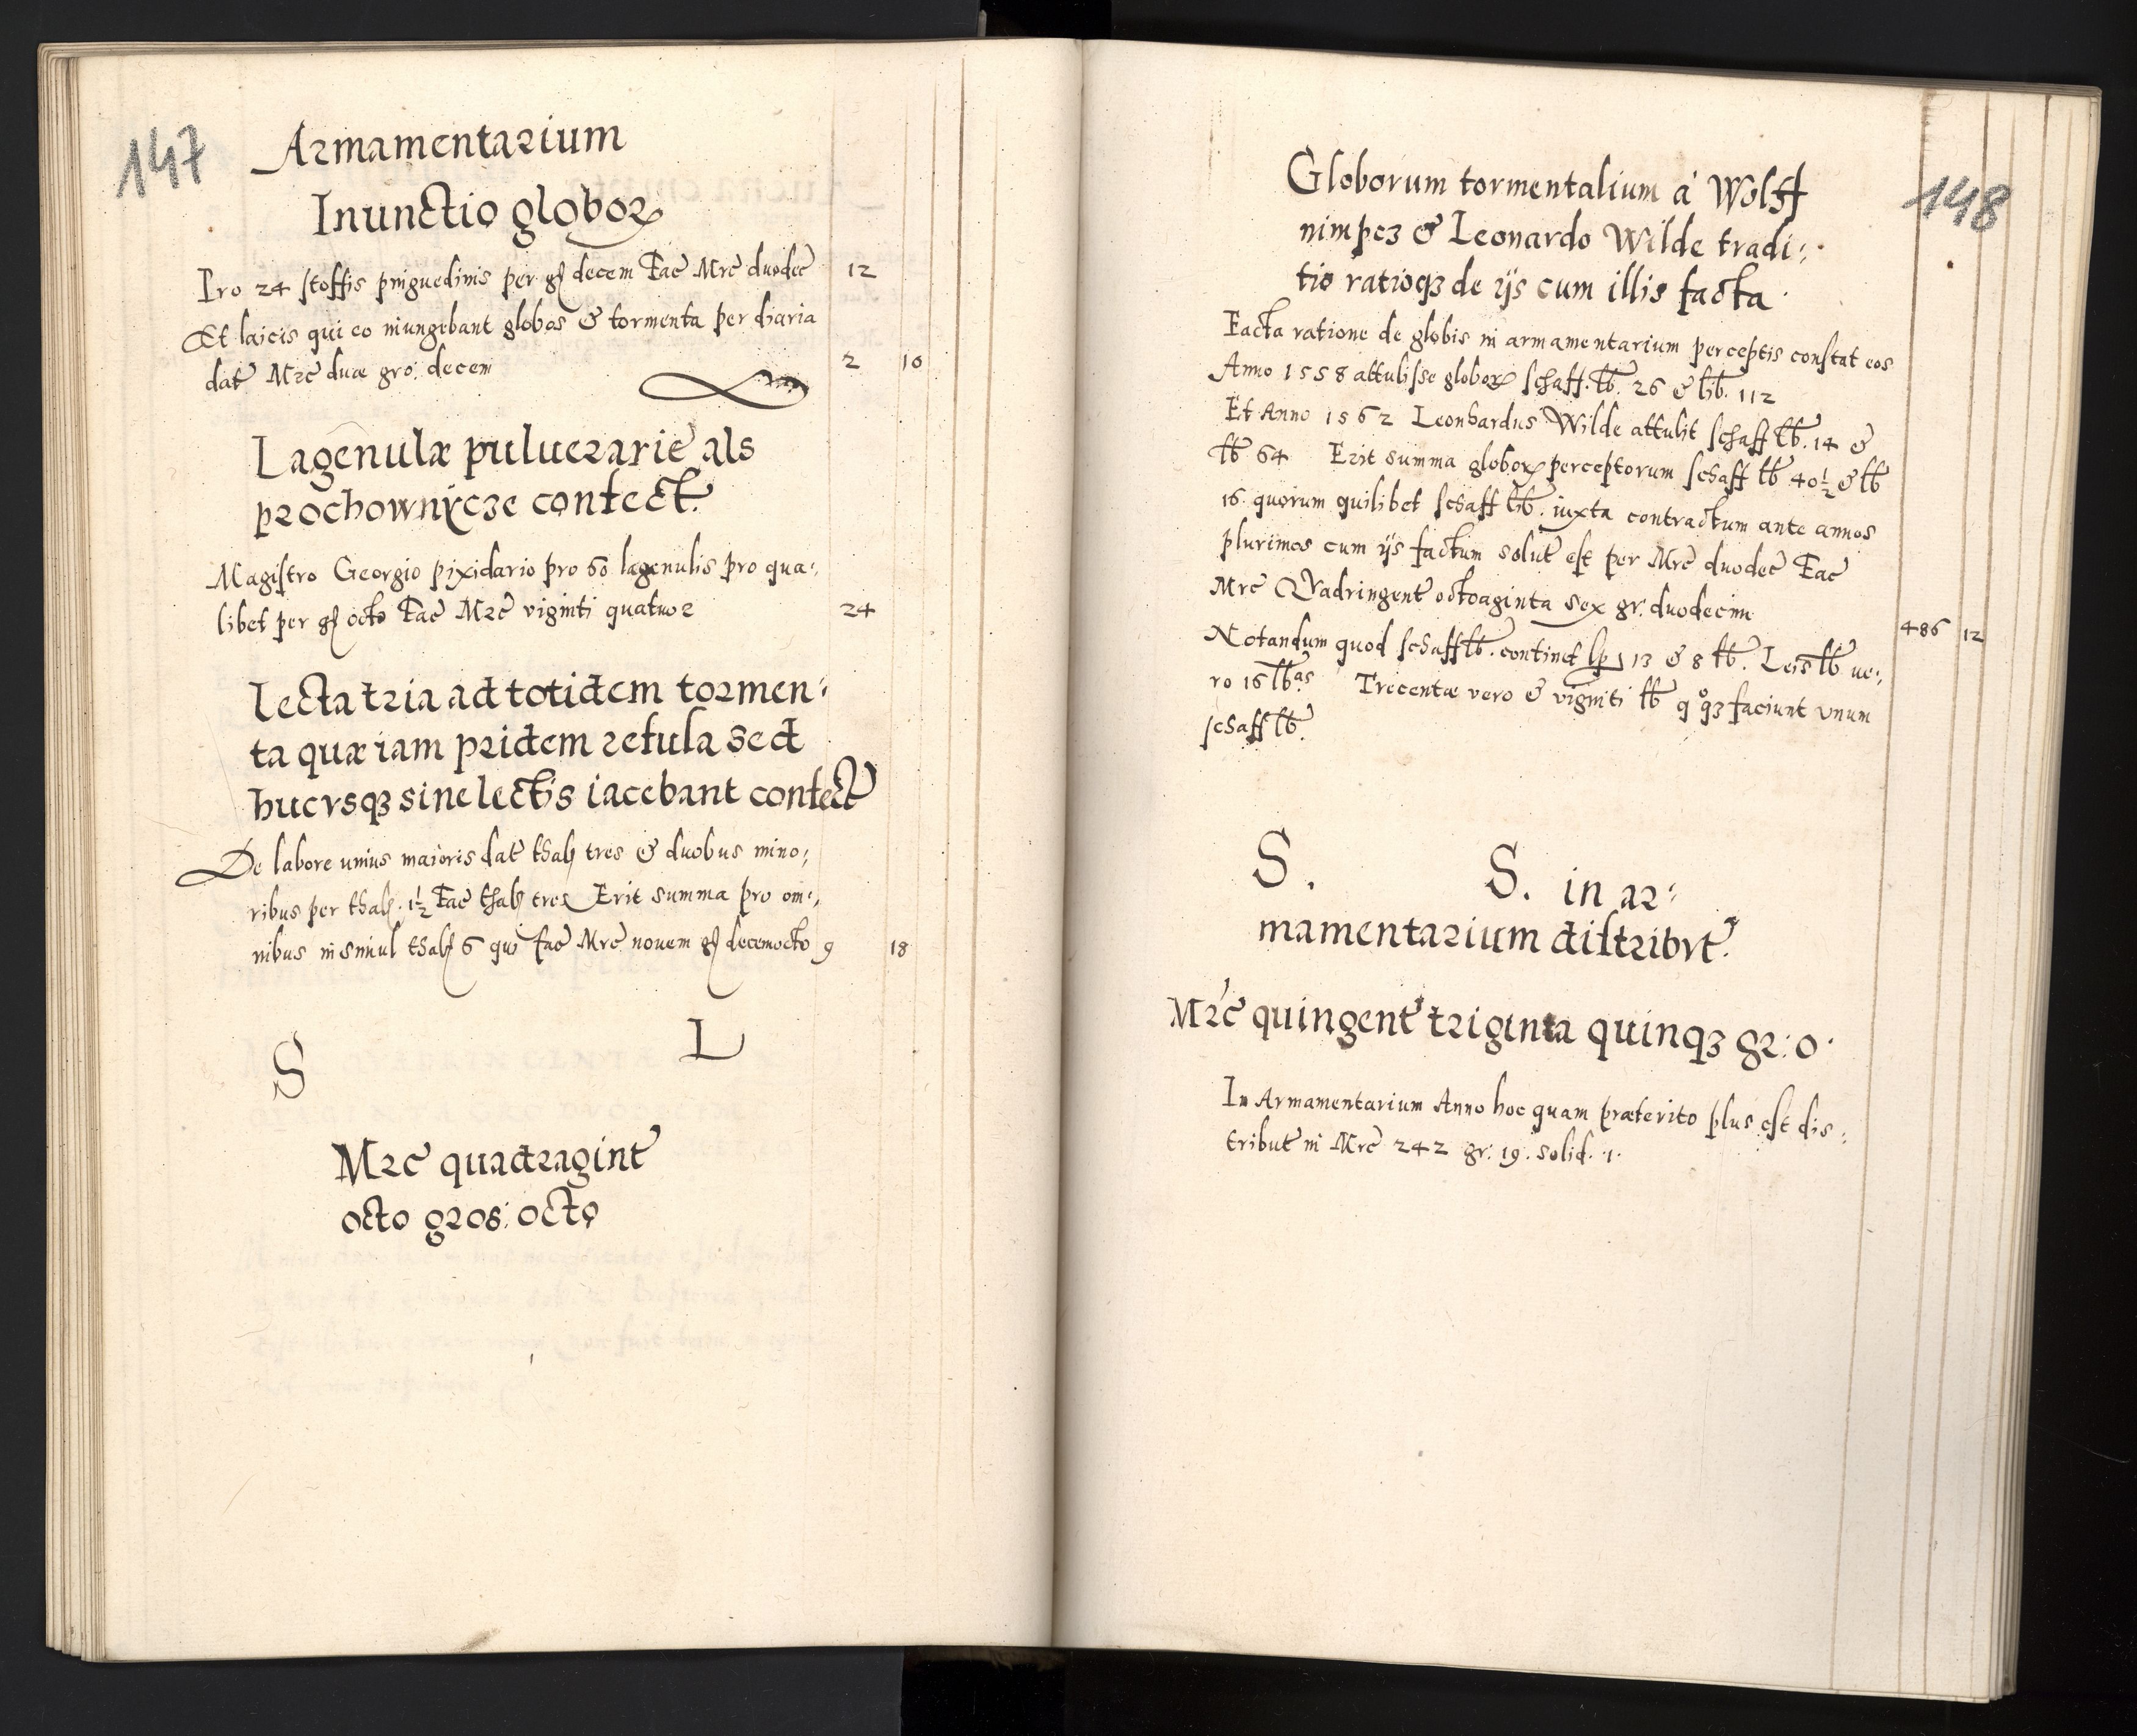 147
Armamentarium
Inunctio globoꝝ
Pro 24 stoffis pinguedinis per gſ decem Fac̄ Mrc̄ duodec̄ 12
Et laicis qui eo inungebant globos & tormenta per diaria
dat̄ Mrc̄ duæ gro: decem 2 10
Lagenulæ puluerarie als
prochownÿcze confect̄.
Magistro Georgio pixidario pro 60 lagenulis pro qua:
libet per gſ octo Fac̄ Mrc̄ viginti quatuor 24
Lecta tria ad totidem tormen:
ta quæ iam pridem refula sed
hucvsqꝫ sine lectis iacebant confect̄
De labore unius maioris dat̄ thaļ tres & duobus mino:
ribus per thaļ. 1½ Fac̄ thaļ tres Erit summa pro om:
nibus insimul thaļ 6 qui fac̄ Mrc̄ nouem gſ decemocto 9 18
S L
Mrc̄ quadragint̄
octo gros: octo
148
Globorum tormentalium á Wolff
nimpcz & Leonardo Wilde tradi:
tio ratioqꝫ de ijs cum illis facta
Facta ratione de globis in armamentarium perceptis constat eos
Anno 1558 attulisse globoꝝ schaff. ℔. 26 & lib. 112
Et Anno 1562 Leonhardus Wilde attulit schaff ℔. 14 &
℔ 64 Erit summa globoꝝ perceptorum schaff ℔ 40½ & ℔
16 quorum quilibet schaff lib. iuxta contractum ante annos
plurimos cum ijs factum solut̄ est per Mrc̄ duodec̄ Fac̄
Mrc̄ Qvadringent̄ octoaginta sex gr: duodecim 486 12
Notandum quod schaff℔. continet lp 13 & 8 ℔. Leis℔ ue:
ro 16 ℔as Trecentæ vero & viginti ℔ q̊qꝫ faciunt vnum
schaff℔.
S. S. in ar:
mamentarium distribvt̄.
Mrc̄ quingent̄ triginta quinqꝫ gr: 0.
In Armamentarium Anno hoc quam præterito plus est dis:
tribut̄ in Mrc̄ 242 gr: 19. solid. 1.